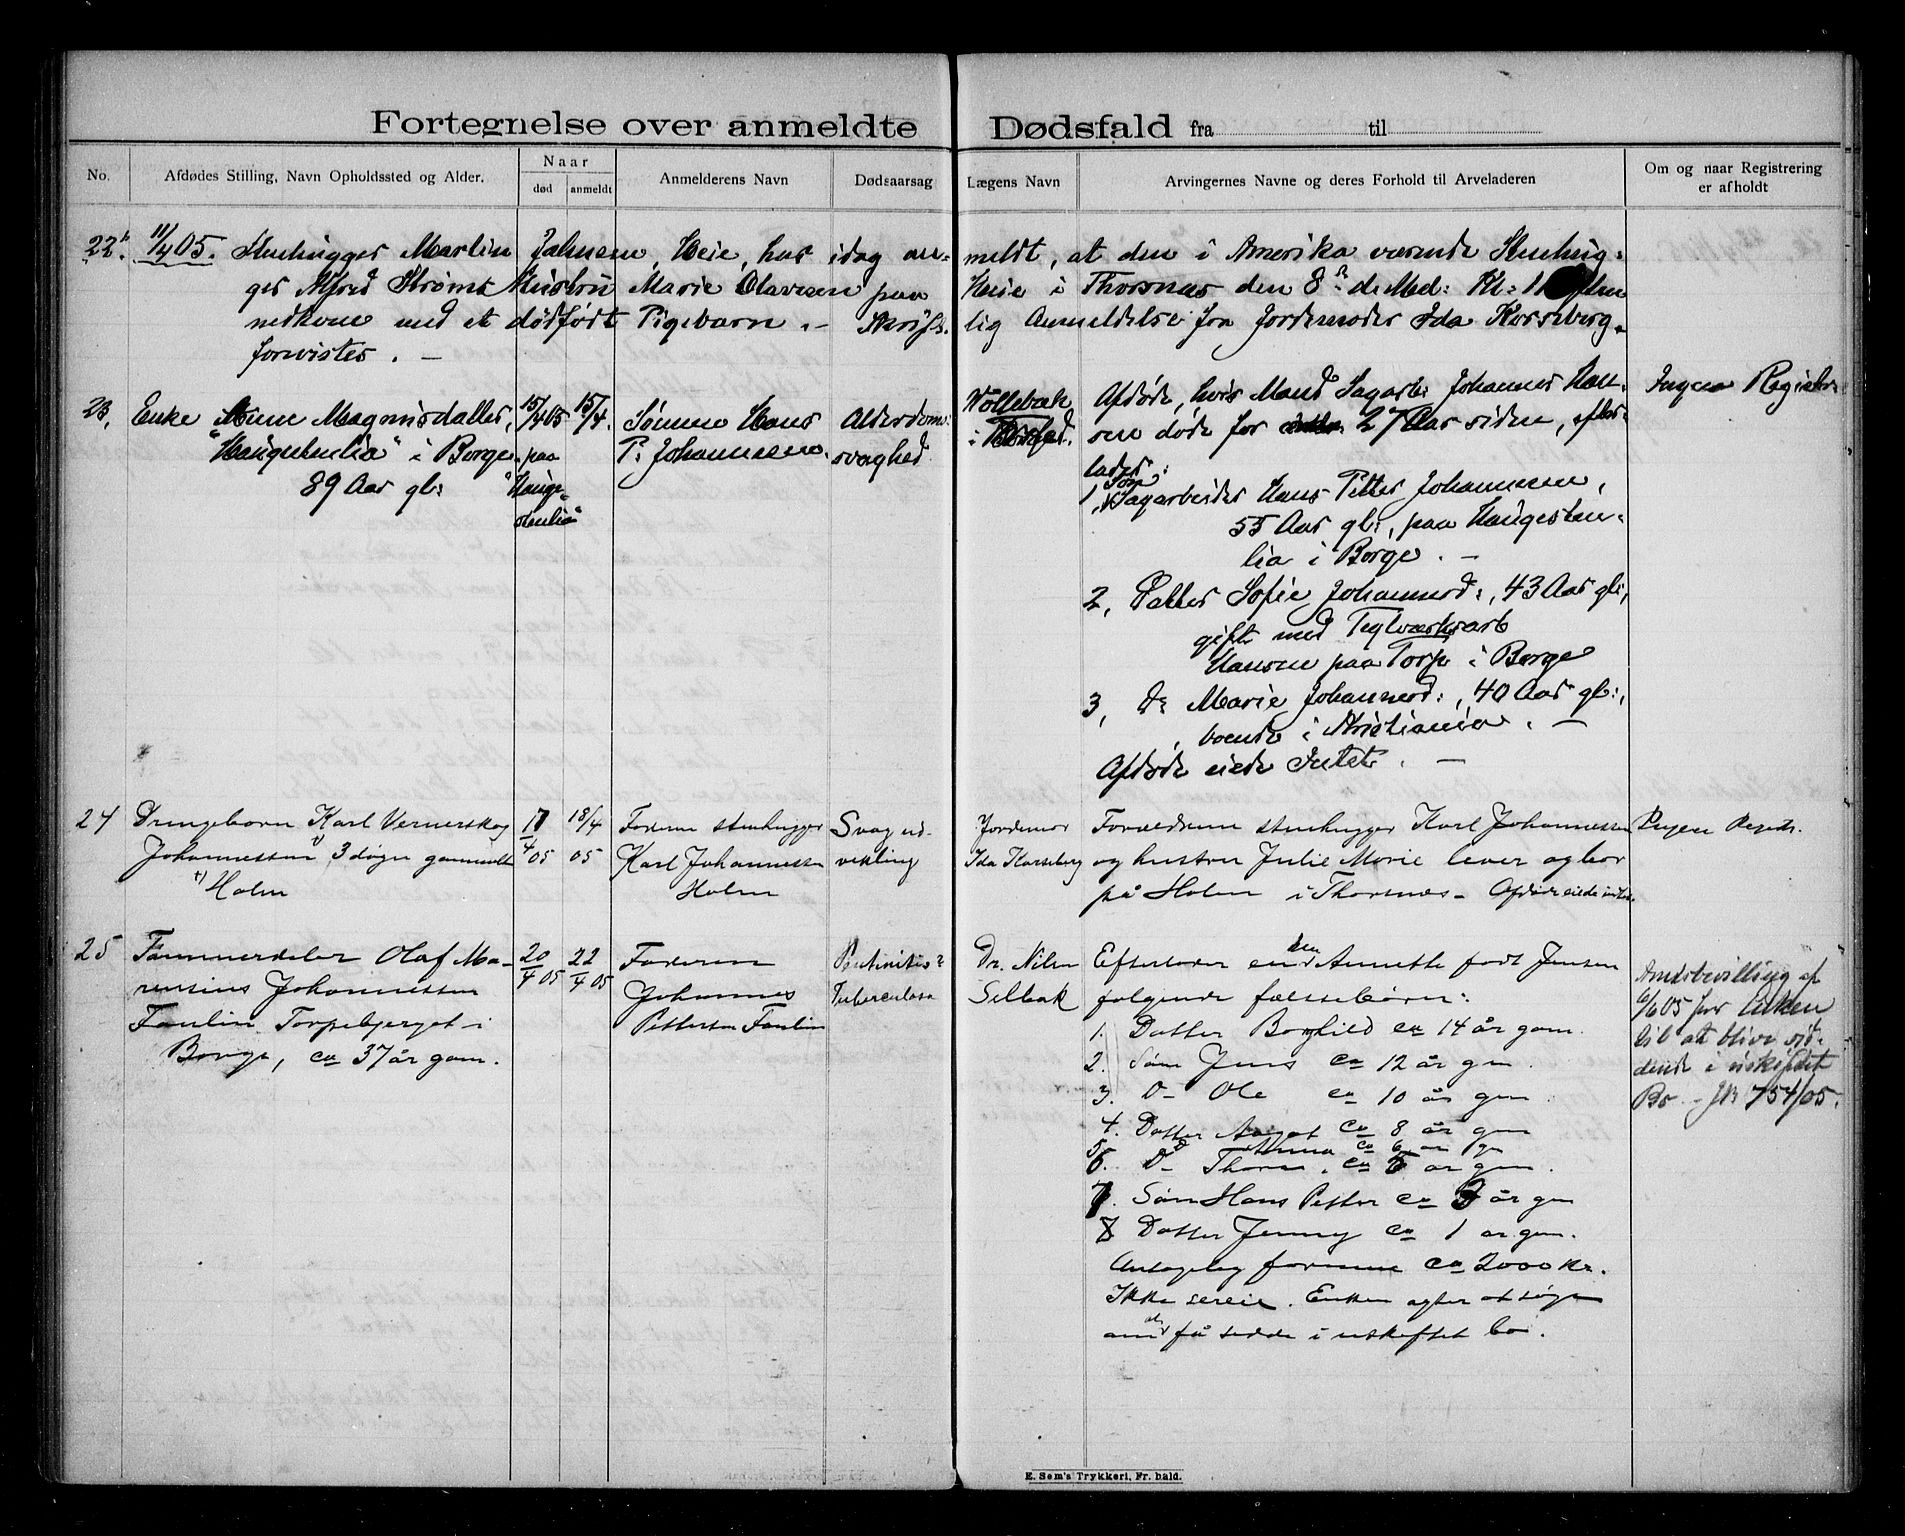 Fortegnelse over anmeldte Dødsfald fra til
No.
Afdødes Stilling, Navn Opholdssted og Alder.
Naar
død
anmeldt
Anmelderens Navn
Dødsaarsag
Lægens Navn
Arvingernes Navne og deres Forhold til Arveladeren
Om og naar Registrering
er afholdt
22b. 11/4 05. Stenhugger Martin Johnsen, Heie, har idag an-
meldt, at den i Amerika værende Stenhug-
ger Alfred Strøms Hustru Marie Olavesen paa
Heie i Thorsnæs den 8de ds Med: Kl: 11 Eftm
nedkom med et dødfødt Pigebarn. - Skrift-
lig Anmeldelse fra Jordemoder Ida Korseberg
forevistes. -
23.
Enke Anne Magnusdatter,
"Haugstenlia" i Borge
89 Aar gl:
15/4 05
paa
"Hauge-
stenlia"
15/4.
Sønnen Hans
P. Johannessen.
Alderdoms-
svaghed
Wollebæk
i Thorsø.
Afdøde, hvis Mand Sagarb: Johannes Han-
sen døde for 27 Aar siden, efter-
lader:
1, Søn Sagarbeider Hans Petter Johannessen,
55 Aar gl:, paa Haugesten-
lia i Borge. -
2, Datter Sofie Johannesd:, 43 Aar gl:,
gift med Teglværksarb
Hansen paa Torp i Borge
3, Do Marie Johannesd:, 40 Aar gl:,
boende i Kristiania. -
Afdøde eiede Intet. -
Ingen Registr:
24
Drengebarn Karl Vernerskog
Johannessen, 3 døgn gammelt
†) Holm
17/4 05
18/4 05
Faderen stenhugger
Karl Johannessen
Holm
Svag ud-
vikling
Jordemor
Ida Korseberg
Forældrene stenhugger Karl Johannessen
og hustru Julie Marie lever og bor
på Holm i Thorsnæs - Afdøde eiede intet.
Ingen Regist.
25
Tømmerdeler Olaf Ma-
rensius Johannessen
Faulin Torpebjerget i
Borge, ca 37 år gam.
20/4 05
22/4 05
Faderen
Johannes
Pettersen Faulin
Peritinitis?
Tuberculosa
Dr. Nilsen
Selbak
Efterlader enken Annette født Jensen
følgende fællesbørn:
1. Datter Borghild ca 14 år gam.
2. Søn Jens ca 12 år gm.
3. Do Ole ca 10 år gm.
4. Datter Aagot ca 8 år gm
5. Do Anna ca 6 år gm
6. Do Thora, ca 5 år gm.
7. Søn Hans Petter ca 3 år gm
8 Datter Jenny ca 1 år gm.
Antagelig formue ca 2000 kr.
Ikke særeie. Enken agter at søge
om at få sidde i uskiftet bo.
Amtsbevilling af
6/6 05 for Enken
til at blive sid-
dende i uskiftet
Bo - JN 754/05.
E. Sem's Trykkeri, Fr. hald.